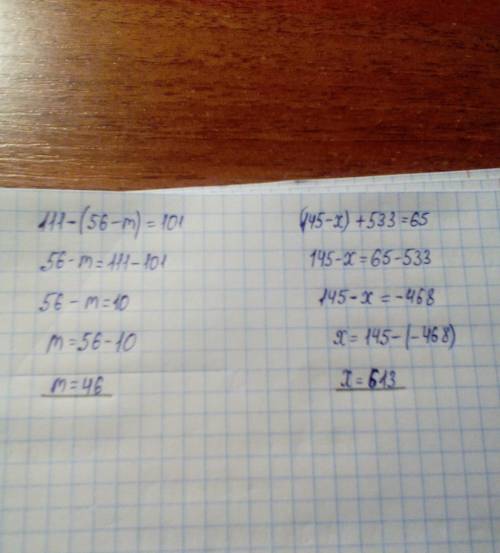 111-(56-m)=101
56-m=111-101
56-m=10
m=56-10
m=46
(145-x)+533=65
145-x=65-533
145-x=-468
x=145-(-468)
x=613